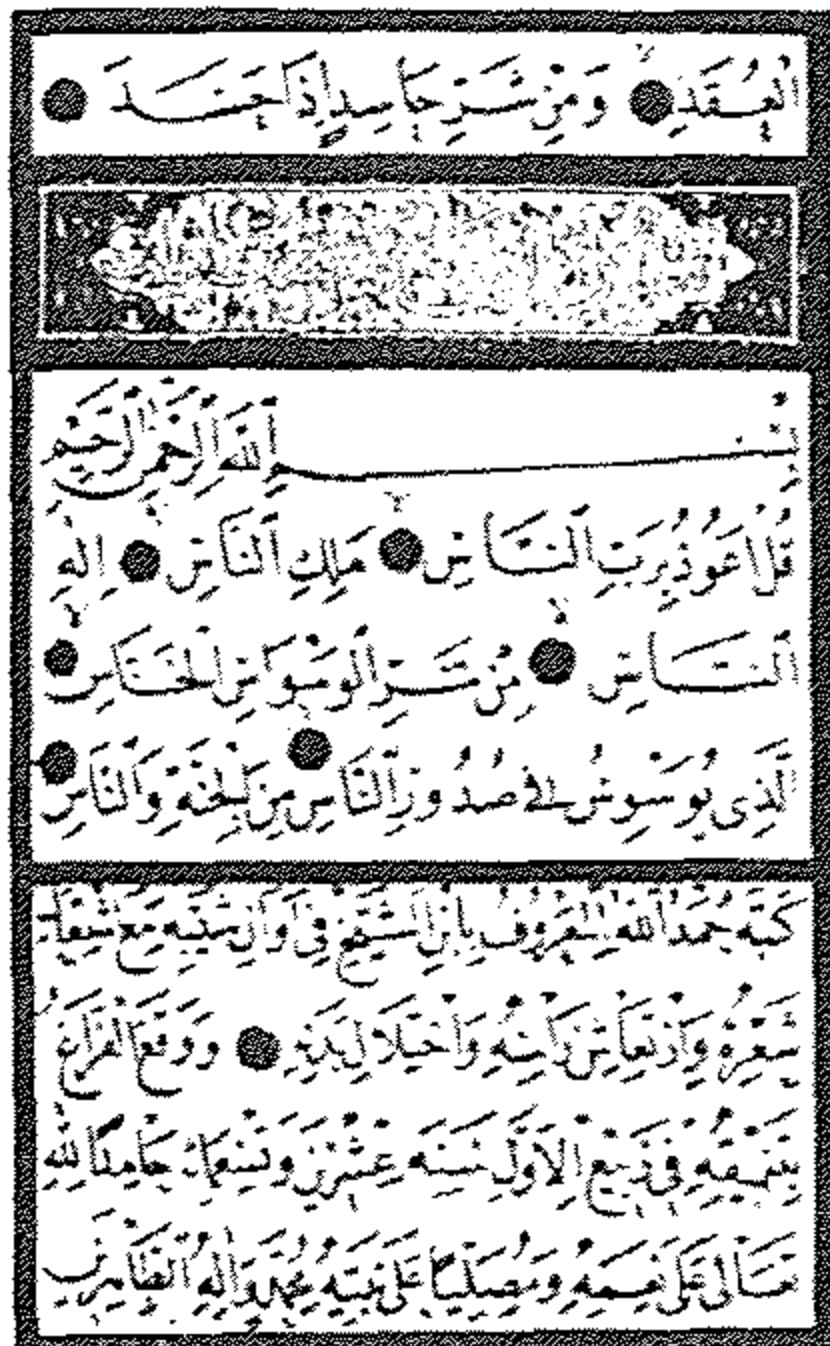 ٱلْعُقَدِ وَمِنْ شَرِّ حَاسِدٍ إِذَا حَسَدَ
بِسْمِ ٱللَّهِ ٱلرَّحْمٰنِ ٱلرَّحِيمِ
قُلْ أَعُوذُ بِرَبِّ ٱلنَّاسِ مَلِكِ ٱلنَّاسِ إِلٰهِ
ٱلنَّاسِ مِنْ شَرِّ ٱلْوَسْوَاسِ ٱلْخَنَّاسِ
ٱلَّذِى يُوَسْوِسُ فِى صُدُورِ ٱلنَّاسِ مِنَ ٱلْجِنَّةِ وَٱلنَّاسِ
كَتَبَهُ حَمْدُ ٱللهِ ٱلْمَعْرُوفُ بِابْنِ ٱلشَّيْخِ فِى أَوَانِ شَيْبِهِ مَعَ
شَعْرِهِ وَٱرْتِعَاشِ رَأْسِهِ وَٱخْتِلَالِ بَدَنِهِ وَوَقَعَ ٱلْفَرَاغُ
بِتَنْمِيقِهِ فِى رَبِيعِ ٱلْأَوَّلِ سَنَةَ عِشْرِينَ وَتِسْعِمِائَة حَامِدًا لِلّٰهِ
تَعَالَى عَلَى نِعَمِهِ وَمُصَلِّيًا عَلَى نَبِيِّهِ مُحَمَّدٍ وَآلِهِ ٱلطَّاهِرِينَ